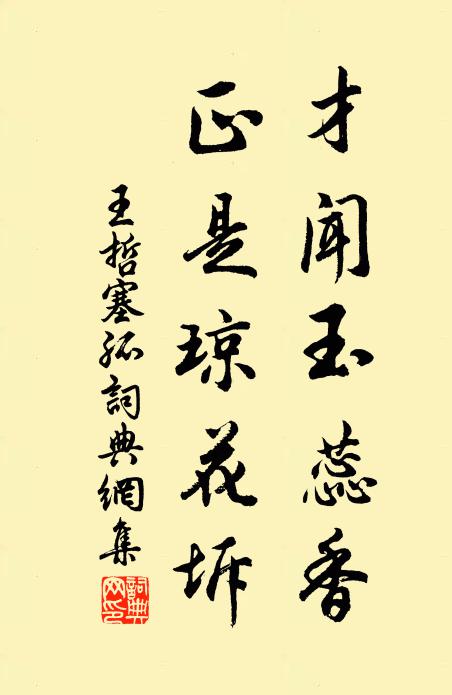 才闻玉蕊香
正是琼花坼
王哲塞孤詞典網集
詞典網印